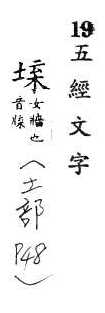 19 五經文字
女牆也
音牒
(土部
P48)